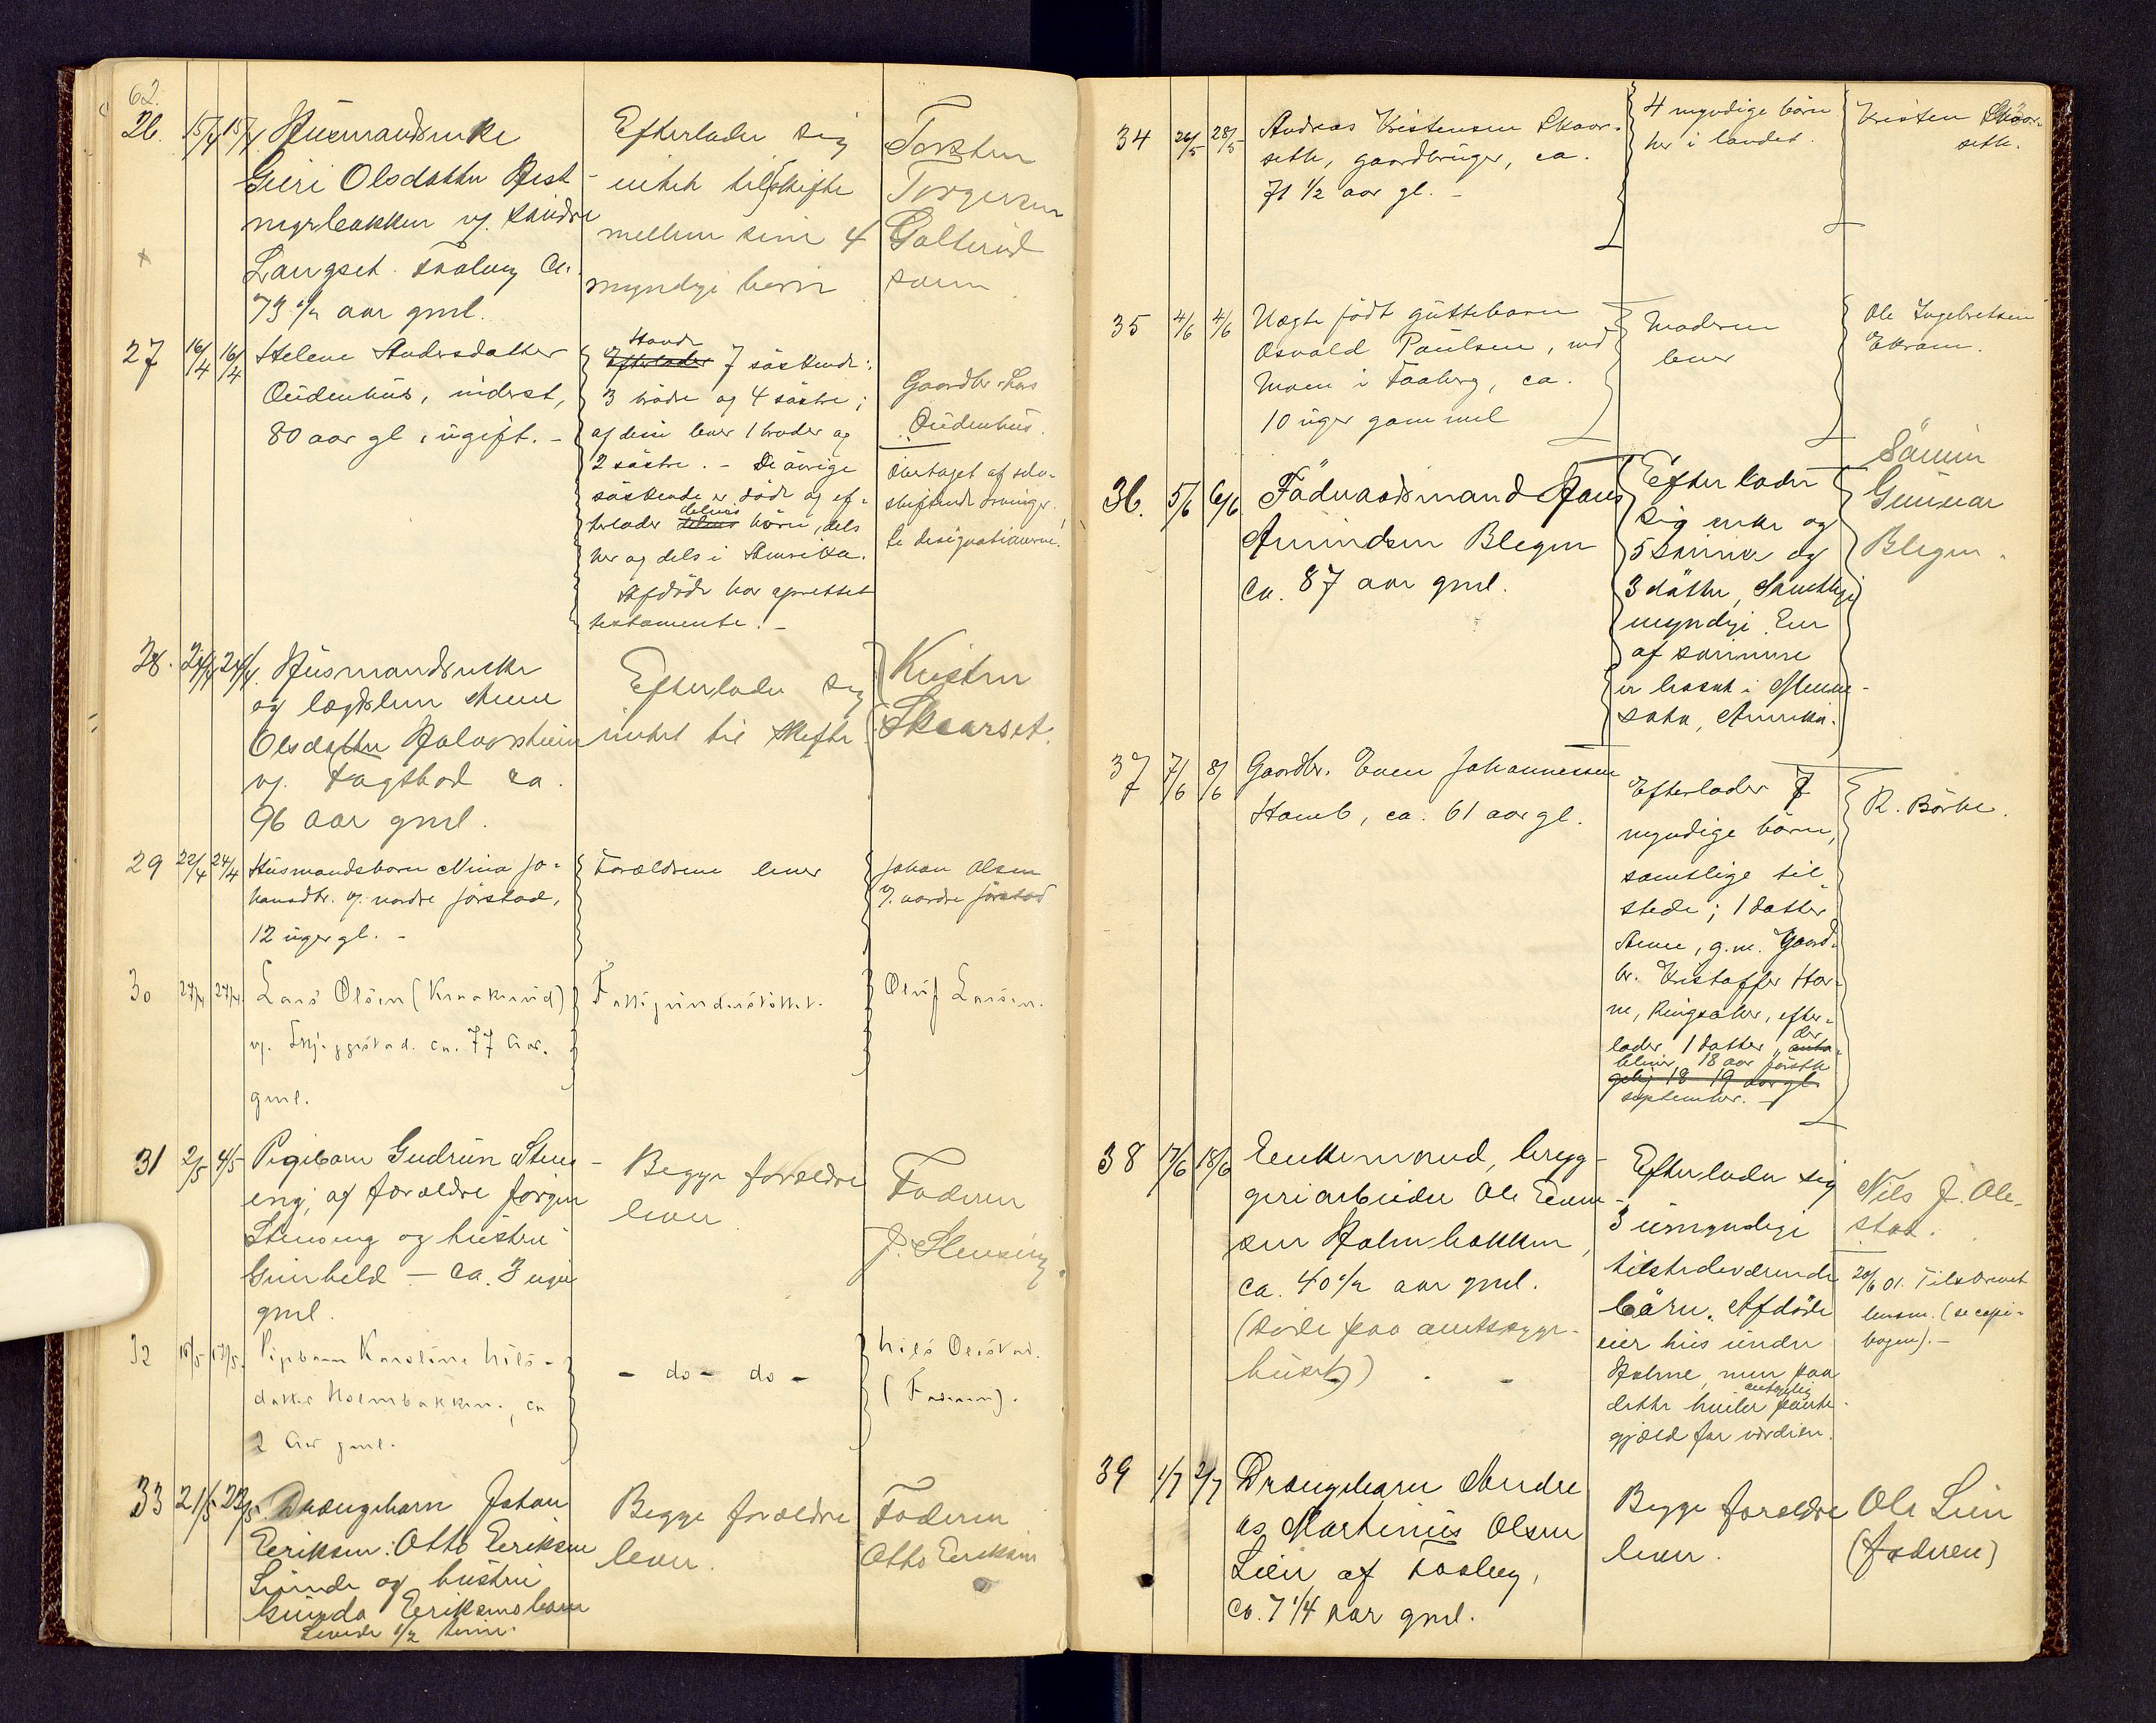 62.
26. 15/4 15/4 Husmandsenke
Guri Olsdatter Hest-
myrbakken u/ søndre
Langset. Faaberg ca.
73 1/2 aar gml.
Efterlader sig
intet til skifte
mellem sine 4
myndige børn
Torsten
Torgersen
Galterud
sønn
27 16/4 16/4 Helene Andersdatter
Oudenhus, inderst,
80 aar gl, ugift. -
Havde
Efterlader 7 søskende:
3 brødre og 4 søstre;
af disse lever 1 broder og
2 søstre. - De øvrige
søskende er døde og ef-
terlader delvis børn, dels
her og dels i Amerika.
Afdøde har oprettet
testamente. -
Gaardbr. Lars
Oudenhus.
Overtaget af selv-
skiftende arvinger.
Se designationerne!
28. 24/4 24/4. Husmandsenke
og lægdslem Anne
Olsdatter Halvorsheim
u/. Fagstad ca.
96 aar gml.
Efterlader sig
intet til skifte
Kristen
Skaarset.
29 22/4 24/4 Husmandsbarn Nina Jo-
hansdtr. u/. nordre Jørstad,
12 uger gl. -
Forældrene lever
Johan Olsen
u/. nordre Jørstad
30 24/4 24/4 Lars Olsen (Kraakerud)
u/. Skjeggestad. ca. 77 Aar.
gml.
Fattigunderstøttet.
Oluf Larsen.
31 2/5 4/5 Pigebarn Gudrun Stens-
eng; af forældre Jørgen
Stenseng og hustru
Gunhild - ca. 3 uger
gml.
Begge forældre
lever
Faderen
J. Stenseng.
32 15/5 17/5. Pigebarn Karoline Nils-
datter Holmbakken, ca
2 Aar gml.
- do - do -
Nils Olestad.
(Faderen).
33 21/5 22/5. Drengebarn Johan
Eriksen: Otto Eriksen
Lunde og hustru
Gunda Eriksens barn
Levede 1/2 time.
Begge forældre
lever.
Faderen
Otto Eriksen
34 26/5 28/5 Andreas Kristensen Skaar-
seth, gaardbruger, ca.
71 1/2 aar gl. -
4 myndige børn
her i landet.
Kristen Skaar-
seth.
35 4/6 4/6 Uægte født guttebarn
Osvald Paulsen, ved
Moen i Faaberg, ca.
10 uger gammel
Moderen
lever
Ole Ingebretsen
Ekram.
36. 5/6 6/6 Føderaadsmand Hans
Amundsen Blegen
ca. 87 aar gml.
Efterlader
sig enke og
5 sønner og
3 døtre, Samtlige
myndige. En
af sønnene
er bosat i Minne-
sota, Amerika.
Sønnen
Gunnar
Blegen.
37 7/6 8/6 Gaardbr. Even Johannessen
Stamb, ca. 61 aar gl.
Efterlader 7
myndige børn,
samtlige til
stede; 1 datter
Anne, g.m. Gaard-
br. Kristoffer Hor-
ne, Ringsaker, efter-
lader 1 datter, der
bliver 18 aar første
18 - 19 aar gl.
september. -
R. Børke.
38 17/6 18/6 Enkemand, bryg-
geriarbeider Ole Even-
sen Holmbakken,
ca. 40 1/2 aar gml.
(døde paa amtssyge-
huset)
Efterlader sig
3 umyndige
tilstedeværende
børn. Afdøde
eier hus under
Holme, men paa
dette hviler antagelig pante-
gjæld for værdien.
Nils J. Ole-
stad.
20/6 01. Tilskrevet
lensm. (se copi-
bogen). -
39 1/7 2/7 Drengebarn Andre
as Martinius Olsen
Lien af Faaberg,
ca. 7 1/4 aar gml.
Begge forældre
lever.
Ole Lien
(faderen)